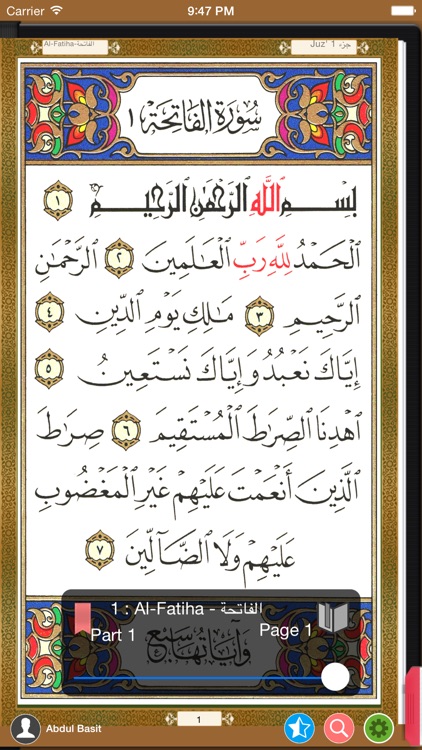 Carrier 9:47 PM
Al-Fatiha-الفاتحة Juz' 1 جزء
سُورَةُ الفَاتِحَةِ ١
بِسْمِ اللَّهِ الرَّحْمَٰنِ الرَّحِيمِ ١
الْحَمْدُ لِلَّهِ رَبِّ الْعَالَمِينَ ٢ الرَّحْمَٰنِ
الرَّحِيمِ ٣ مَالِكِ يَوْمِ الدِّينِ ٤
إِيَّاكَ نَعْبُدُ وَإِيَّاكَ نَسْتَعِينُ ٥
اهْدِنَا الصِّرَاطَ الْمُسْتَقِيمَ ٦ صِرَاطَ
الَّذِينَ أَنْعَمْتَ عَلَيْهِمْ غَيْرِ الْمَغْضُوبِ
عَلَيْهِمْ وَلَا الضَّالِّينَ ٧
1 : Al-Fatiha - الفاتحة
Part 1 Page 1
وَآيَاتُهَا سَبْعٌ
1
Abdul Basit